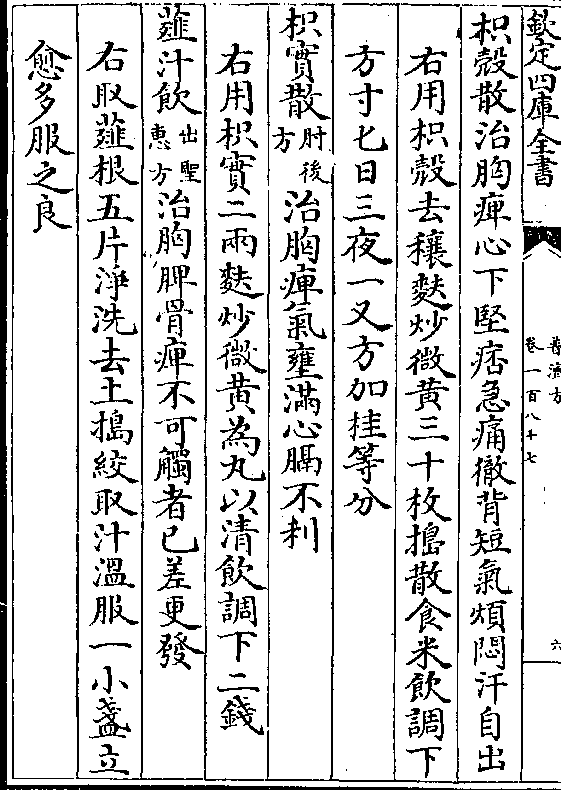 欽定四庫全書
普濟方
卷一百八十七
六
枳殼散治胸痺心下堅痞急痛徹背短氣煩悶汗自出
右用枳殼去穰麩炒微黃三十枚搗散食米飲調下
方寸匕日三夜一又方加桂等分
枳實散出肘後方治胸痺氣壅滿心膈不利
右用枳實二兩麩炒微黃為丸以清飲調下二錢
薤汁飲出聖惠方治胸脾骨痺不可觸者已差更發
右取薤根五片淨洗去土搗絞取汁溫服一小盞立
愈多服之良